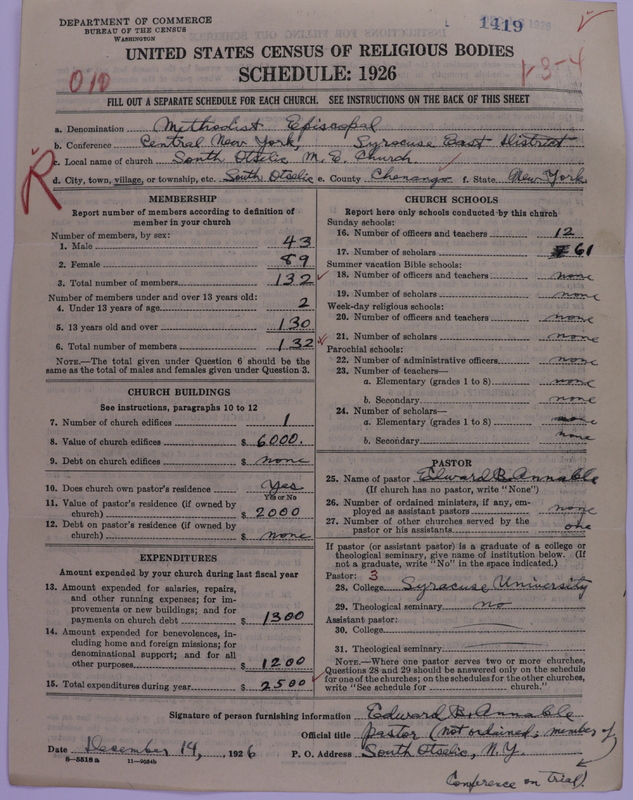 DEPARTMENT OF COMMERCE
BUREAU OF THE CENSUS
WASHINGTON
1419
1926
1-3-4
UNITED STATES CENSUS OF RELIGIOUS BODIES
SCHEDULE: 1926
010
FILL OUT A SEPARATE SCHEDULE FOR EACH CHURCH. SEE INSTRUCTIONS ON THE BACK OF THIS SHEET
a. Denomination Methodist Episcopal
b. Conference Central New York, Syracuse East District
c. Local name of church South Otselic M. E. Church
d. City, town, village, or township, etc. South Otselic e. County Chenango f. State New York
R
MEMBERSHIP
Report number of members according to definition of
member in your church
Number of members, by sex:
1. Male 43
2. Female 89
3. Total number of members 132
Number of members under and over 13 years old:
4. Under 13 years of age 2
5. 13 years old and over 130
6. Total number of members 132
NOTE.—The total given under Question 6 should be the
same as the total of males and females given under Question 3.
CHURCH BUILDINGS
See instructions, paragraphs 10 to 12
7. Number of church edifices 1
8. Value of church edifices $ 6000.
9. Debt on church edifices $ none
10. Does church own pastor's residence Yes
Yes or No
11. Value of pastor's residence (if owned by
church) $ 2000
12. Debt on pastor's residence (if owned by
church) $ none
EXPENDITURES
Amount expended by your church during last fiscal year
13. Amount expended for salaries, repairs,
and other running expenses; for im-
provements or new buildings; and for
payments on church debt $ 1300
14. Amount expended for benevolences, in-
cluding home and foreign missions; for
denominational support; and for all
other purposes $ 1200
15. Total expenditures during year $ 2500
CHURCH SCHOOLS
Report here only schools conducted by this church
Sunday schools:
16. Number of officers and teachers 12
17. Number of scholars 61
Summer vacation Bible schools:
18. Number of officers and teachers none
19. Number of scholars none
Week-day religious schools:
20. Number of officers and teachers none
21. Number of scholars none
Parochial schools:
22. Number of administrative officers none
23. Number of teachers—
a. Elementary (grades 1 to 8) none
b. Secondary none
24. Number of scholars—
a. Elementary (grades 1 to 8) none
b. Secondary none
PASTOR
25. Name of pastor Edward B. Annable
(If church has no pastor, write "None")
26. Number of ordained ministers, if any, em-
ployed as assistant pastors none
27. Number of other churches served by the
pastor or his assistants one
If pastor (or assistant pastor) is a graduate of a college or
theological seminary, give name of institution below. (If
not a graduate, write "No" in the space indicated.)
Pastor: 3
28. College Syracuse University
29. Theological seminary no
Assistant pastor:
30. College
31. Theological seminary
NOTE.—Where one pastor serves two or more churches,
Questions 28 and 29 should be answered only on the schedule
for one of the churches; on the schedules for the other churches,
write "See schedule for church."
Signature of person furnishing information Edward B. Annable
Official title pastor (not ordained; member of
Date December 14, 1926 P. O. Address South Otselic, N.Y.
8—5518a 11—9554b
Conference on trial)